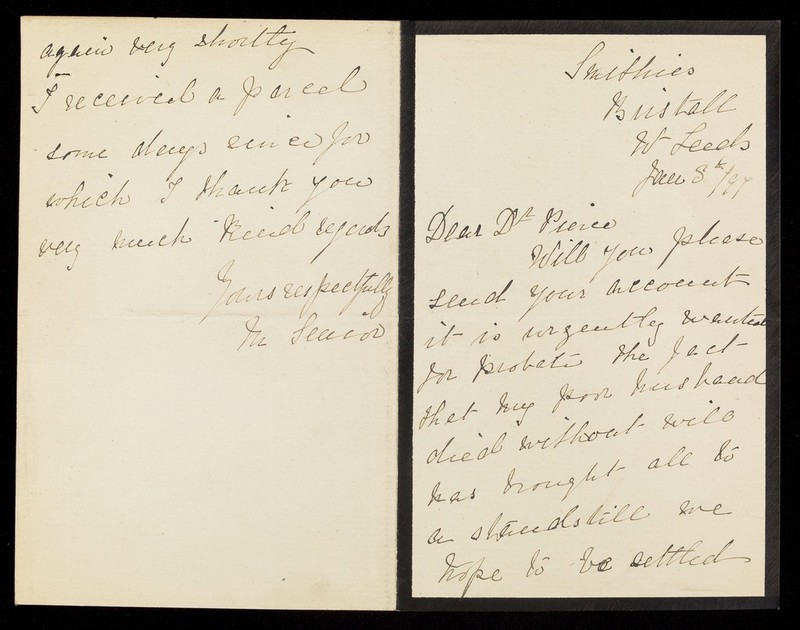 Smithies
Birstall
Nr Leeds
Jan 8th/97
Dear Dr Pierce
Will you please
send your account
it is urgently wanted
for probate the fact
that my poor husband
died without will
has brought all to
a standstill we
hope to be settled
again very shortly
I received a parcel
some days since for
which I thank you
very much Kind regards
Yours respectfully
M Senior